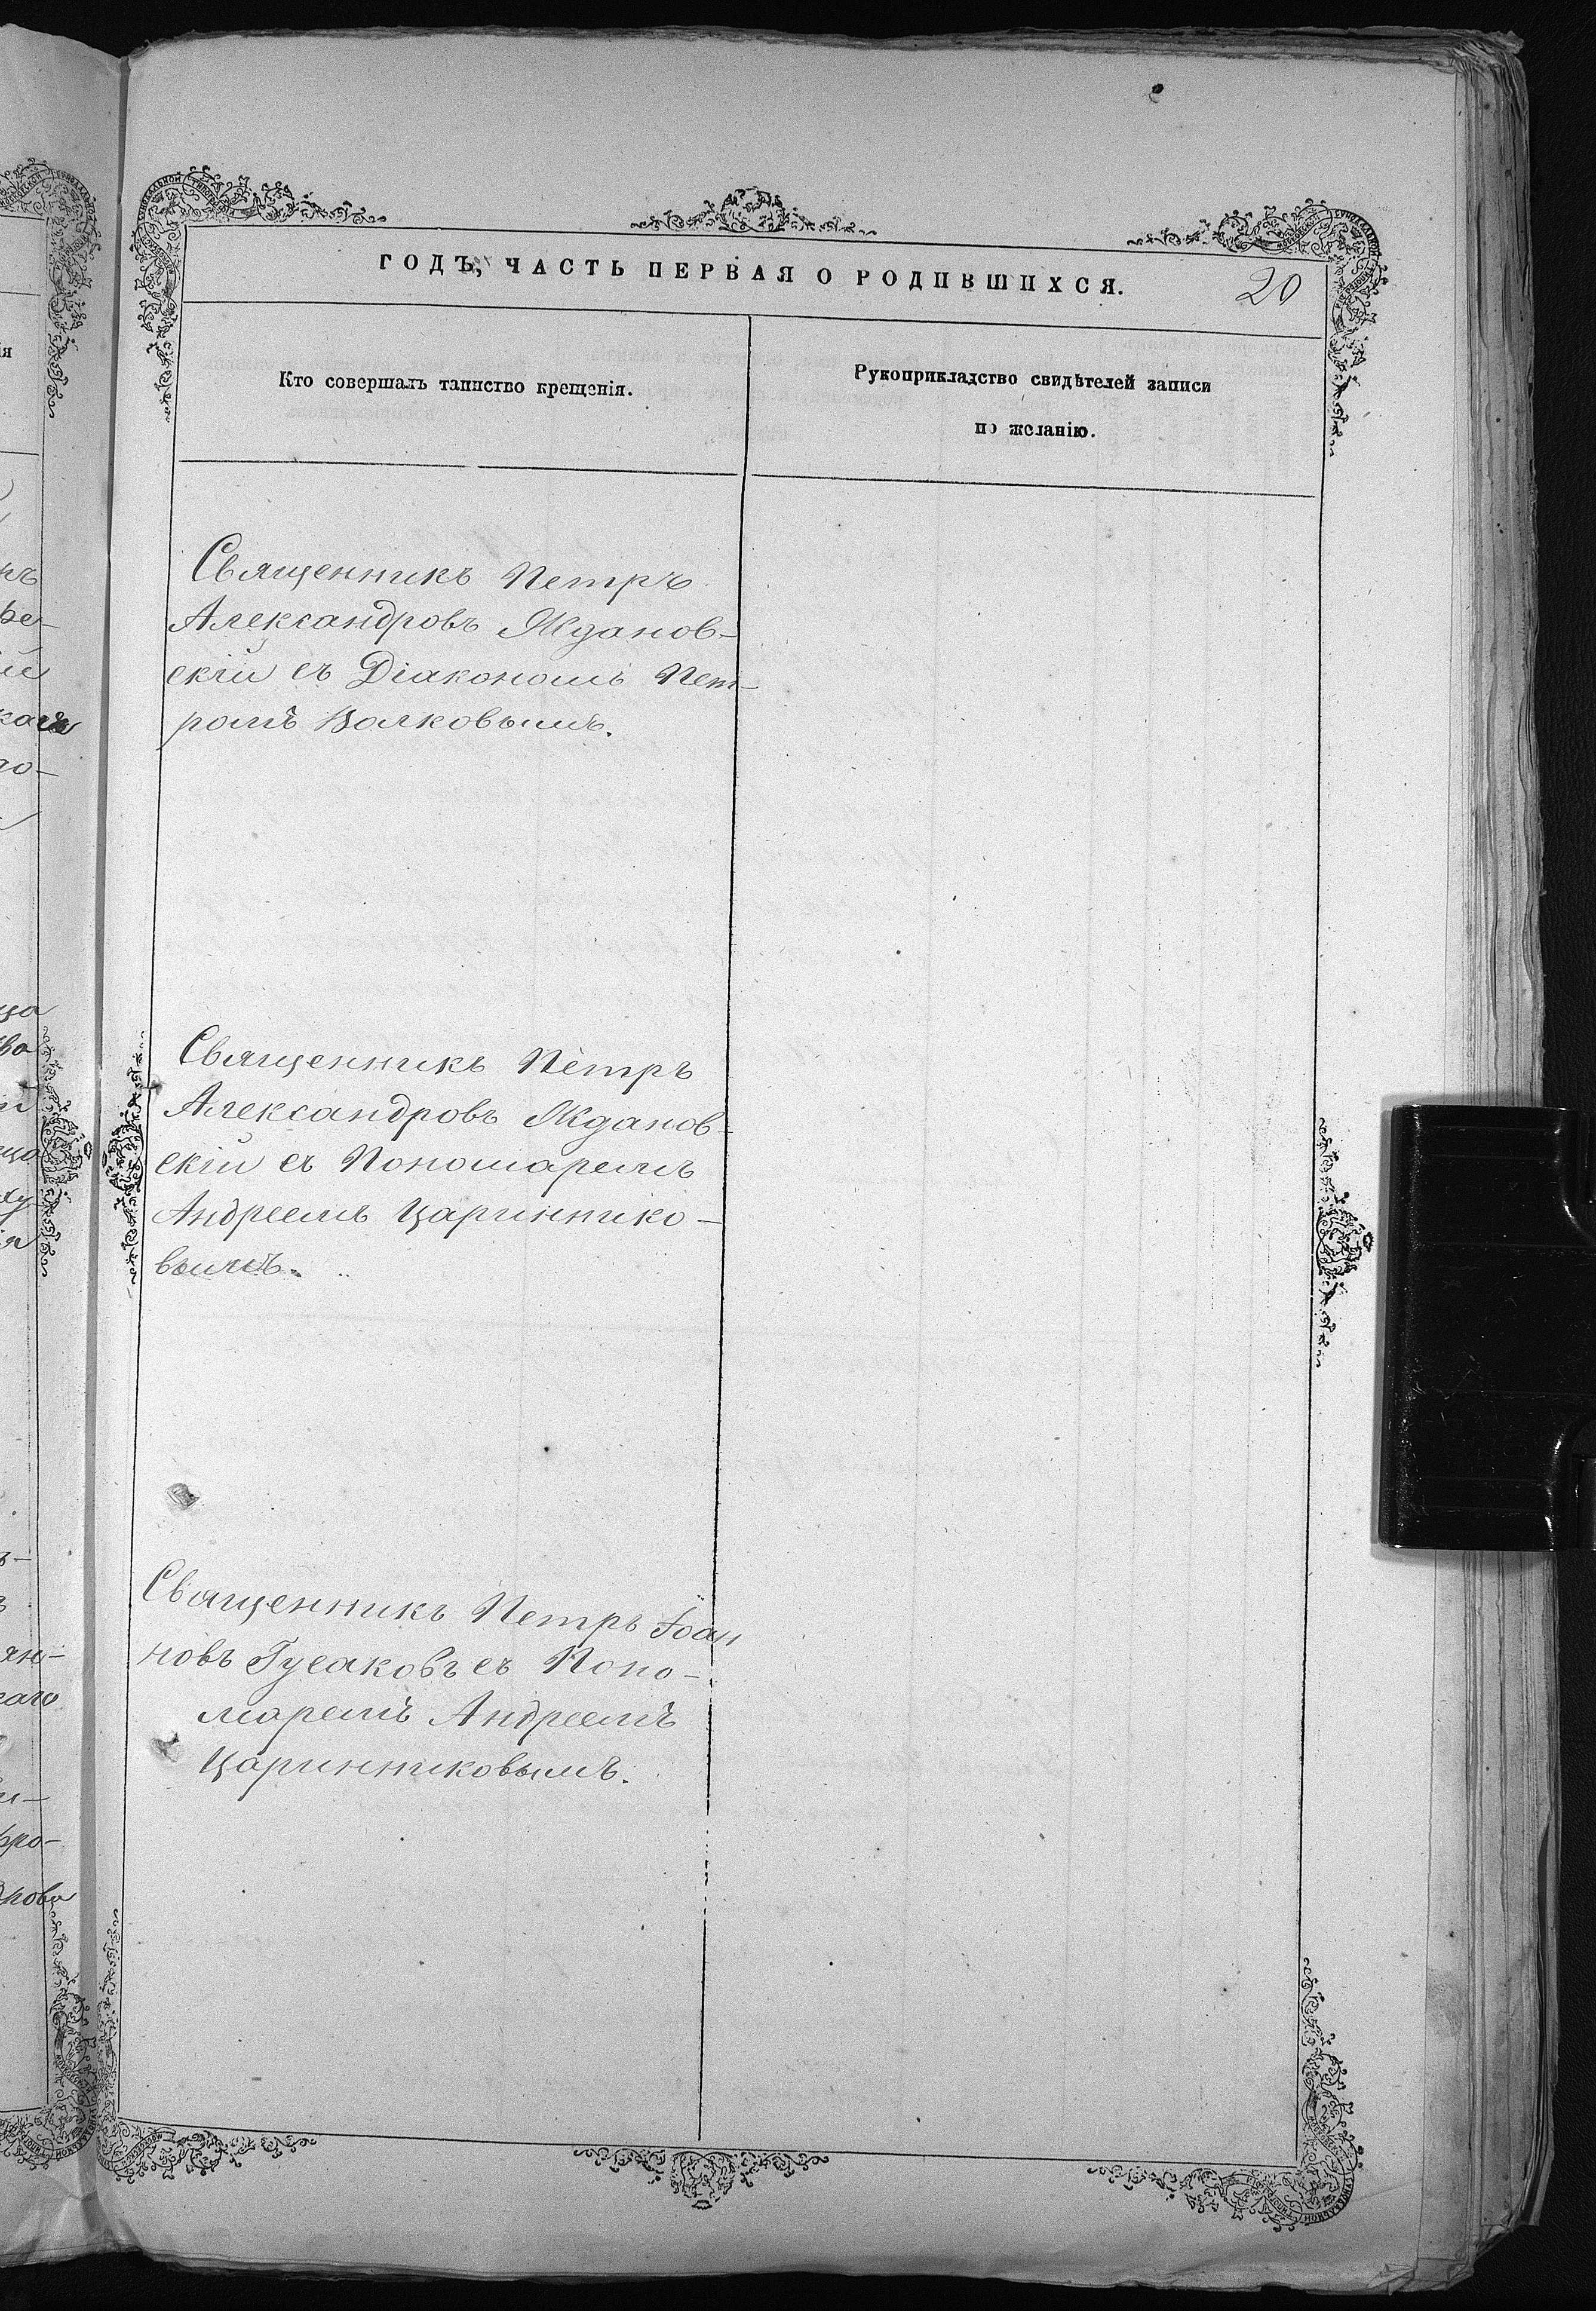 ГОДЪ, ЧАСТЬ ПЕРВАЯ О РОДИВШИХСЯ.
20
Кто совершалъ таинство крещенія.
Рукоприкладство свидѣтелей записи
по желанію.
Священникъ Петръ
Александровъ Ждановскій
скій съ Діакономъ Пет-
ромъ Волковымъ.
Священникъ Петръ
Александровъ Жданов-
скій съ Пономаремъ
Андреемъ Царинnико-
вымъ.
Священникъ Петръ Іоан
новъ Гусаковъ съ Поно-
маремъ Андреемъ
Царинниковымъ.